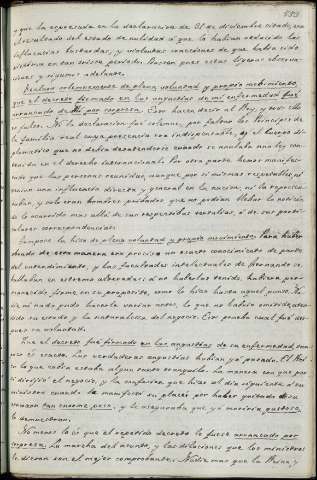 y que la expresada en la declaracion de 31 de diciembre citado, era
el resultado del estado de nulidad á que la habian reducido las
influencias bastardas, y violentas coacciones de que habia sido
victima en tan crítico periodo. Bastan pues estas ligeras observa-
ciones y sigamos adelante.
Declaro solemnemente de plena voluntad y propio movimiento,
que el decreto firmado en las angustias de mi enfermedad fué
arrancado de Mi por sorpresa. Esto hacen decir al Rey, y todo ello
es falso. Ni la declaracion fué solemne, por faltar los Principes de
la familia real cuya presencia era indispensable, y el cuerpo di-
plomatico que no debia desatenderse cuando se anulaba una ley con-
tenida en el derecho internacional. Por otra parte hemos manifes-
tado que las personas reunidas, aunque por sí mismas respetables, ni
tenian una influencia directa y general en la nacion, ni la represen-
taban, y solo eran hombres privados, que no podian llevar la noticia
de lo ocurrido mas allá de sus respectivas tertulias, ó de sus parti-
culares correspondencias.
Tampoco la hizo de plena voluntad y propio movimiento. Para haber
obrado de esta manera era preciso un exacto conocimiento de parte
del entendimiento, y las facultades intelectuales de Fernando se
hallaban en extremo alteradas: á no haberlas tenido, hubiera per-
manecido firme en su proposito, como lo hizo hasta aquel punto.
sí nada pudo hacerle variar antes, lo que no habia
sido su estado y la naturaleza del negocio. Esto prueba cual fué en-
tonces su voluntad.
Que el decreto fué firmado en las angustias de su enfermedad, tam-
poco es exacto. Las verdaderas angustias habian ya pasado. El Rey
lo que cabia estaba algun tanto tranquilo. La manera con que por
sí dirigió el negocio, y la confianza que hizo al dia siguiente á su
ministro cuando le manifestó su placer por haber quitado de su
corazon tan enorme peso, y le aseguraba que ya moriria gustoso,
lo demuestran.
No menos lo es que el repetido decreto le fuese arrancado por
sorpresa. La marcha del asunto, y las dilaciones que los ministros
le dieron son el mejor comprobante. Nadie mas que la Reina, y